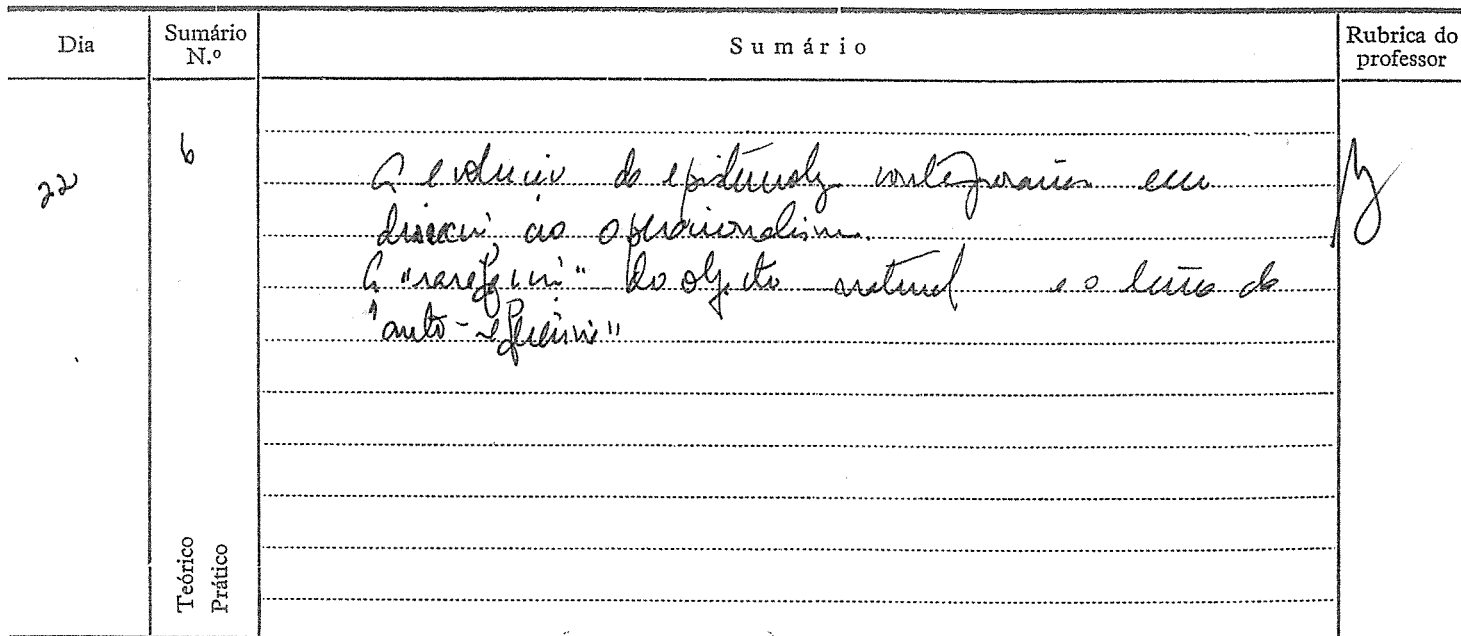 Dia
Sumário N.º
Sumário
Rubrica do professor
22
6
A evolução da epistemologia contemporânea em
direcção ao operacionalismo.
A "rarefacção" do objecto natural e o da
"auto-referência"
Teórico
Prático